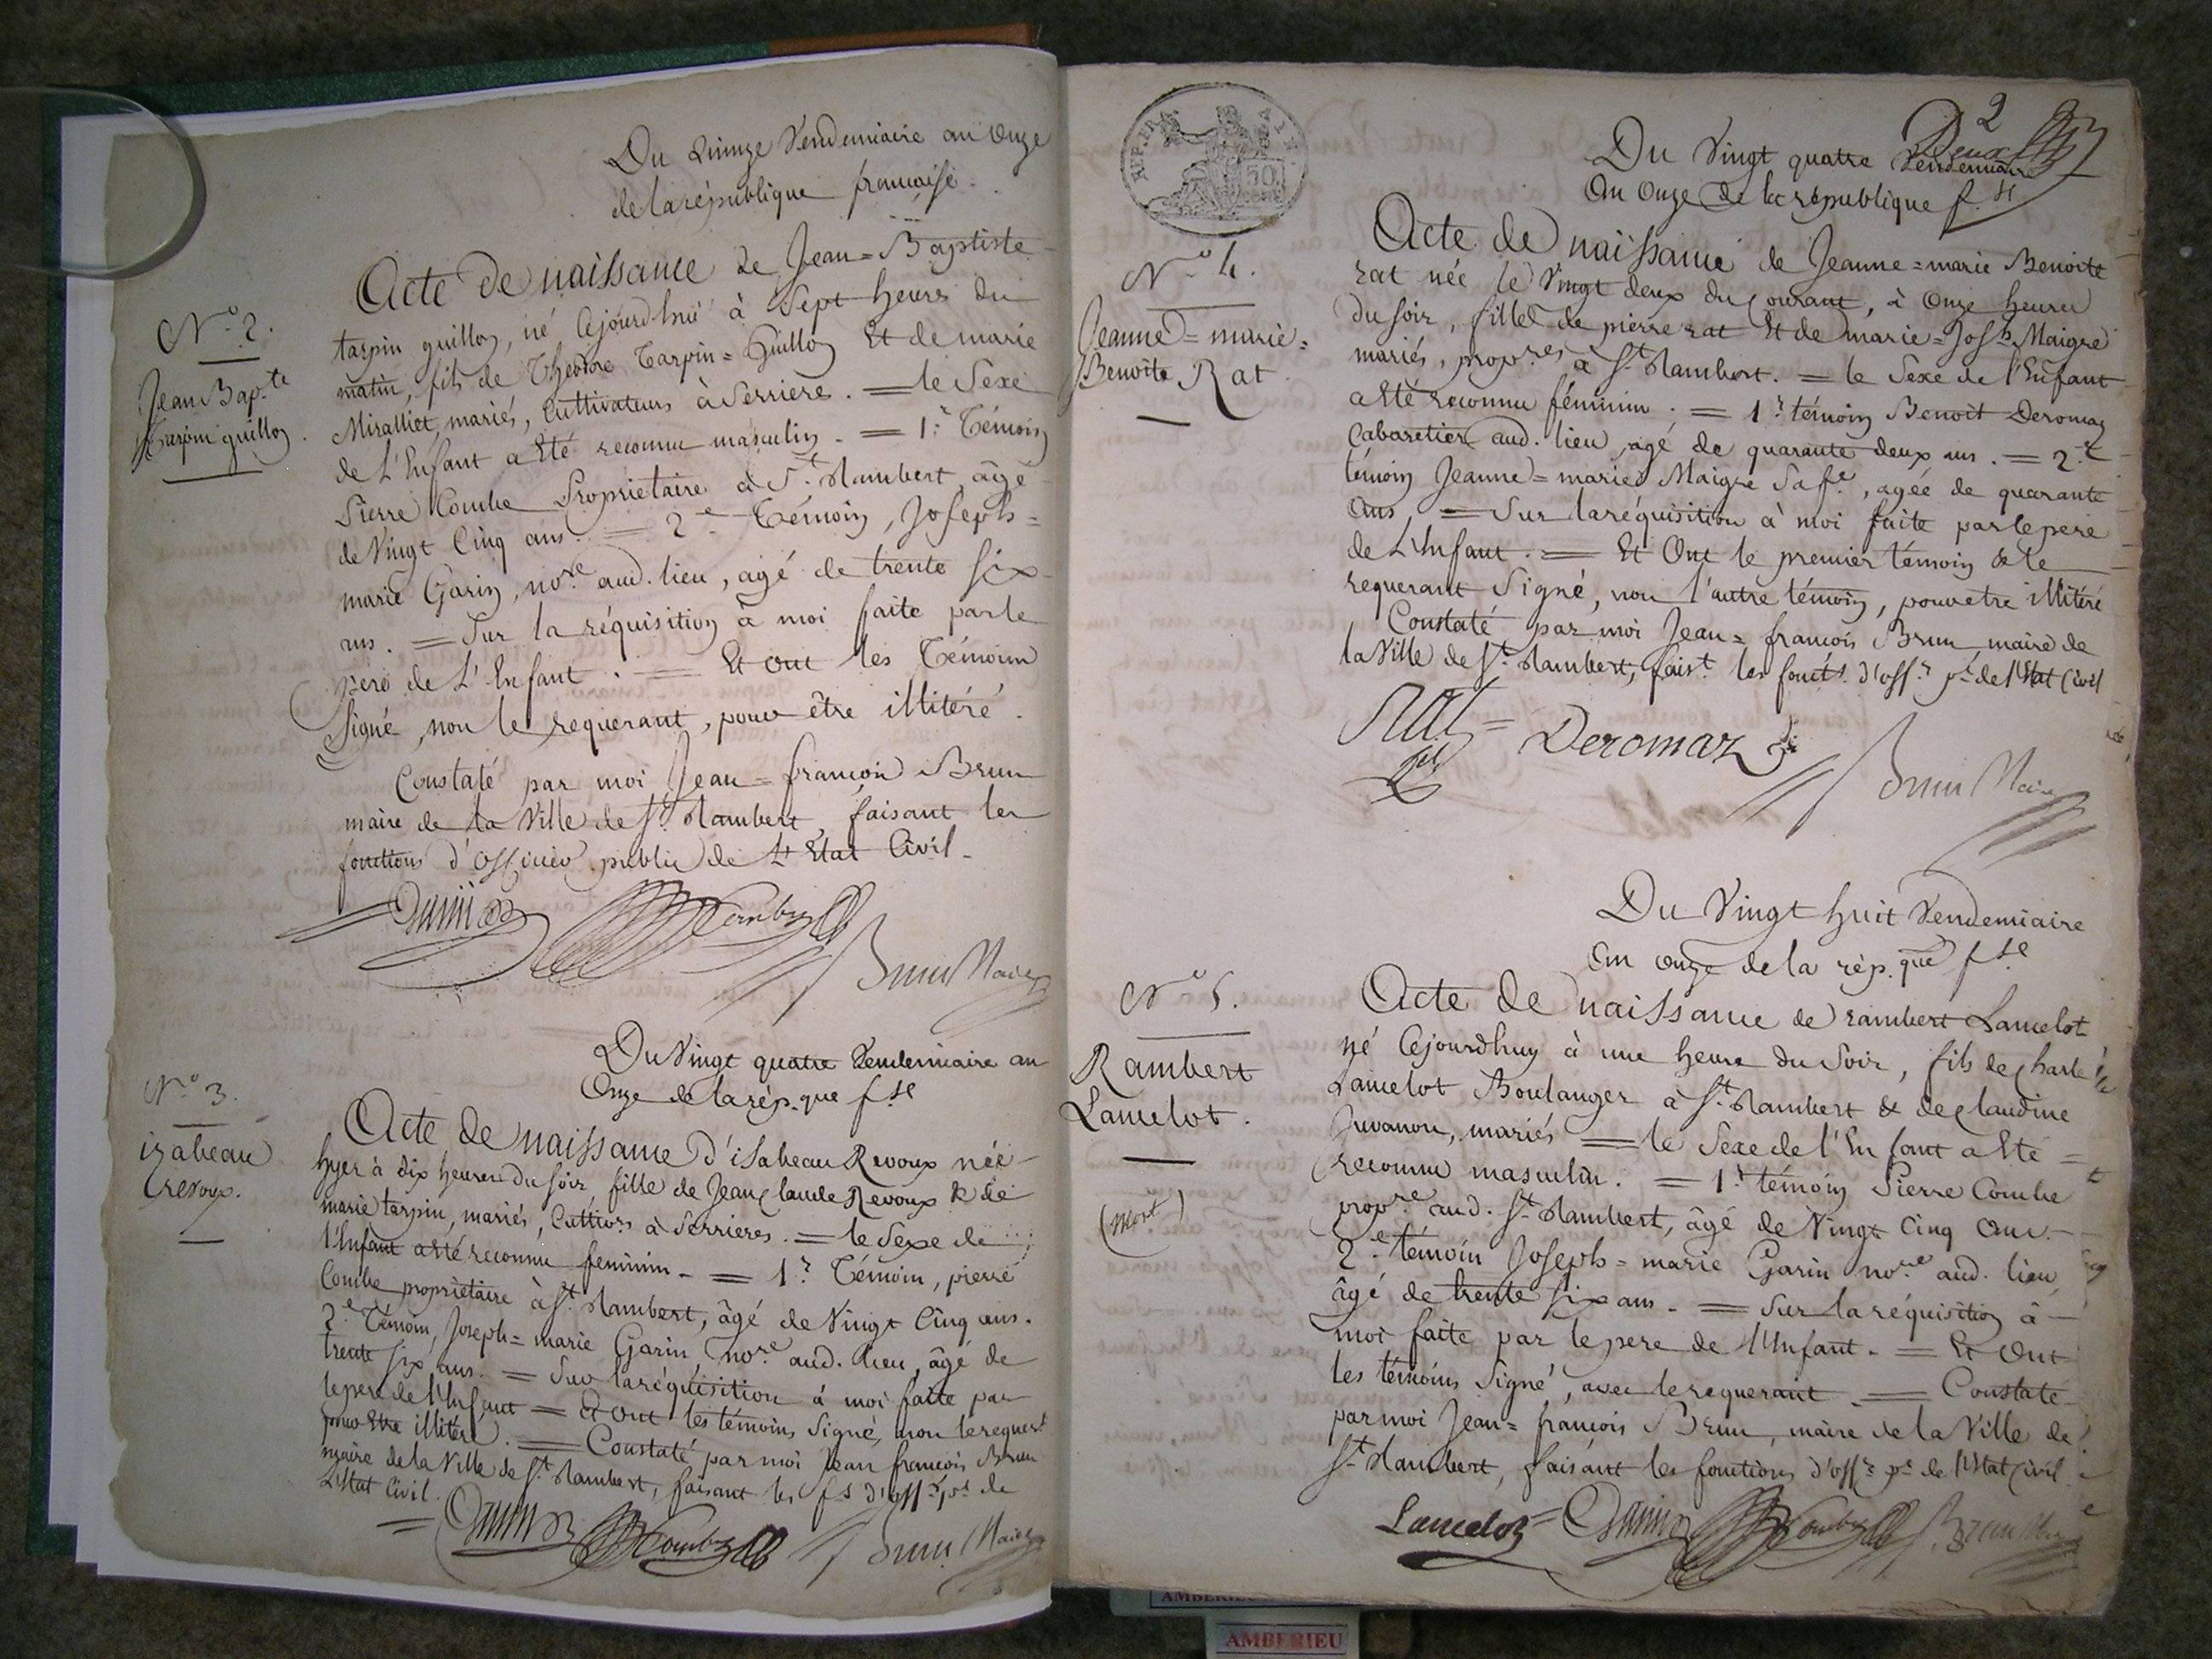 Du quinze Vendemiaire an onze
de la république française.
N.° 2.
Jean Bap.te
tarpin guillon.
Acte de naissance de Jean=Baptiste
tarpin guillon, né Cejourdhui à Sept heures du
matin, fils de Théodore Tarpin=Guillon Et de marie
Miralliet, mariés, Cultivateurs à Serrieres. = le Sexe
de L'Enfant a Eté reconnu masculin. = 1.r Témoin
Pierre Combe Propriétaire à S.t Rambert, âgé
de Vingt Cinq ans. = 2.e Témoin, Joseph=
marie Garin, no.re aud. lieu, agé de trente Six
ans. = Sur la réquisition à moi faite par le
pere de L'Enfant. = Et ont les Témoins
Signé, non le requerant, pour être illitéré.
Constaté par moi Jean=françois Brun
maire de la Ville de S.t Rambert, faisant les
fonctions d'officier public de L'Etat Civil.
Garin Combe
Brun Maire
Du Vingt quatre Vendemiaire an
Onze de la rép.que f.se
N.° 3.
izabeau
revoux.
Acte de naissance d'isabeau Revoux née
hyer à dix heures du soir, fille de Jean Claude Revoux & de
marie tarpin, mariés, Cultiv.rs à Serrieres. = le Sexe de
l'Enfant a été reconnu feminin. = 1.r Témoin, pierre
Combe propriétaire à S.t Rambert, âgé de Vingt Cinq ans.
2.e Témoin, Joseph=marie Garin, no.re aud. lieu, âgé de
trente six ans. = Sur la réquisition à moi faite par
le pere de l'Enfant = Et ont les témoins Signé, non le requer.t
pour Etre illitéré. = Constaté par moi Jean françois Brun
maire de la Ville de S.t Rambert, faisant les f.s d'off.r p.c de
L'Etat Civil.
Garin Combe Brun Maire
REP. FRA
50
2
Deux
Du Vingt quatre Vendemiaire
an Onze de la république f.se
N.° 4.
Jeanne=marie=
Benoite Rat.
Acte de naissance de Jeanne=marie Benoite
rat née le Vingt deux du Courant, à Onze heures
du soir, fille de pierre rat Et de marie=Jos.h Maigre
mariés, prop.res à S.t Rambert. = le Sexe de l'Enfant
a été reconnu féminin. = 1.r témoin Benoit Deromaz
Cabaretier aud. lieu, agé de quarante deux ans. = 2.e
témoin Jeanne=marie Maigre Sa fe, agée de quarante
ans, = Sur la réquisition à moi faite par le pere
de L'Enfant. = Et Ont le premier témoin & le
requerant Signé, non l'autre témoin, pour etre illitéré
Constaté par moi Jean=françois Brun, maire de
la Ville de S.t Rambert, fais.t les fonct.s d'off.r p.c de l'Etat Civil
Rat= Deromaz
Brun Maire
Du Vingt huit Vendemiaire
an onze de la rép.que f.se
N.° 5.
Rambert
Lamelot.
(mort)
Acte de naissance de rambert Lamelot
né Cejourdhuy à une heure du Soir, fils de Charle
Lamelot Boulanger à S.t Rambert & de Claudine
Juvanon, mariés = le Sexe de l'Enfant a Eté
reconnu masculin. = 1.r témoin Pierre Combe
prop.re aud. S.t Rambert, âgé de Vingt Cinq ans.
2.e témoin Joseph=marie Garin no.re aud. lieu,
âgé de trente six ans. = Sur la réquisition à
moi faite par le pere de l'Enfant. = Et Ont
les témoins Signé, avec le requerant. = Constaté
par moi Jean=françois Brun, maire de la Ville de
S.t Rambert, faisant les fonctions d'off.r p.c de l'Etat Civil
Lamelot= Garin Combe Brun
AMBERIEU